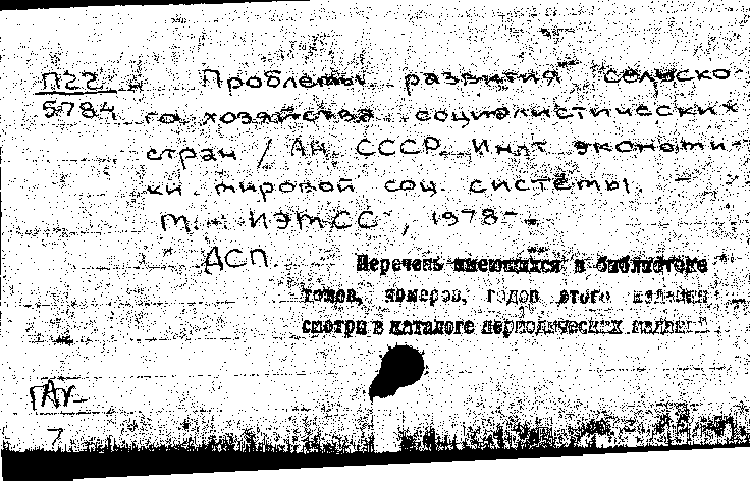 П22
5784
Проблемы развития сельско-
го хозяйства социалистических
стран / АН СССР. Ин-т экономи-
ки мировой соц. системы.
М.: ИЭМСС, 1978-
ДСП.
Перечень имеющихся в библиотеке
томов, номеров, годов этого издания
смотри в каталоге периодических изданий
7